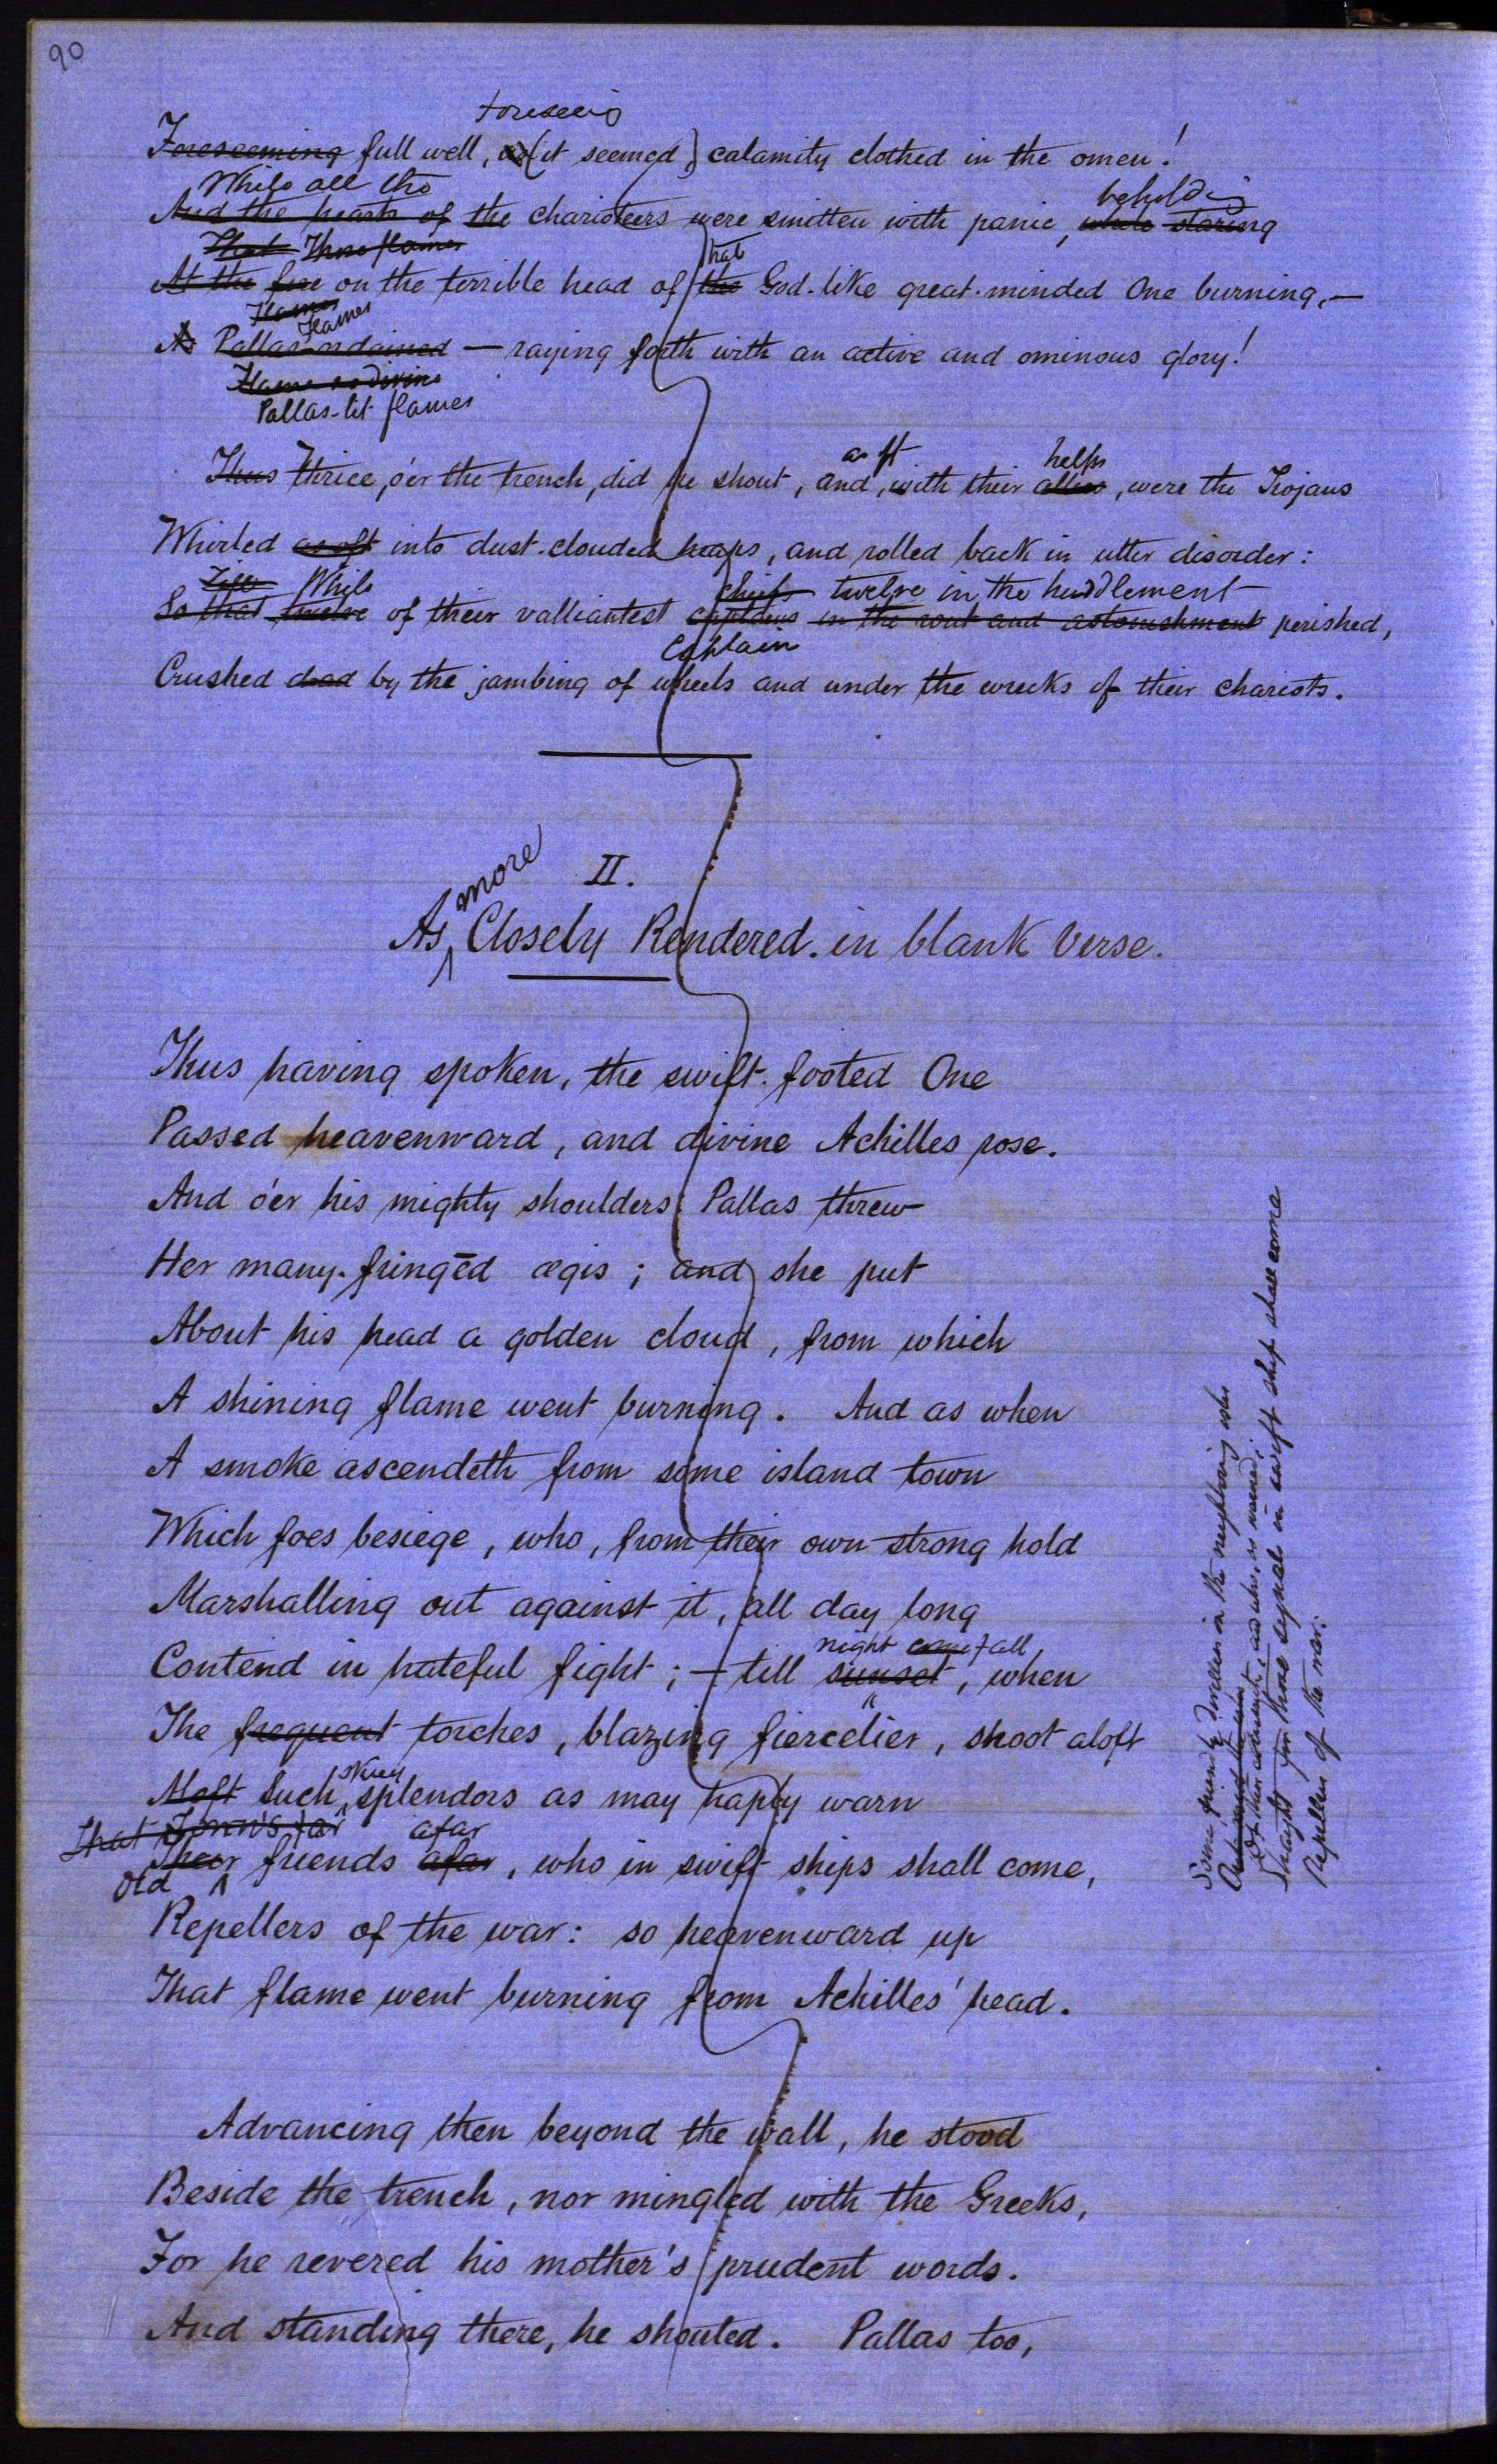 90
foreseeing
Foreseeming full well, as (it seemed) calamity clothed in the omen!
While all the beholding
And the hearts of the charioteers were smitten with panic, while staring
That Those flames that
At the fire on the terrible head of the God-like great-minded One burning,—
Flames Flames
As Pallas-ordained — raying forth with an active and ominous glory!
Flame so divine
Pallas-lit flames
as oft helps
Thus Thrice, o'er the trench, did he shout, and, with their allies, were the Trojans
Whirled as oft into dust-clouded heaps, and rolled back in utter disorder:
Till While chiefs twelve in the huddlement
So that twelve of their valliantest captains in the rout and astonishment perished,
Captain
Crushed dead by the jambing of wheels and under the wrecks of their chariots.
II.
more
As Closely Rendered. in blank verse.
Thus having spoken, the swift-footed One
Passed heavenward, and divine Achilles rose.
And o'er his mighty shoulders Pallas threw
Her many-fringēd ægis; and she put
About his head a golden cloud, from which
A shining flame went burning. And as when
A smoke ascendeth from some island town
Which foes besiege, who, from their own strong hold
Marshalling out against it, all day long
night come fall
Contend in hateful fight;— till sunset, when
The frequent torches, blazing fiercelier, shoot aloft
skiey
Aloft Such splendors as may haply warn
That afar
Their friends afar, who in swift ships shall come,
Old
Repellers of the war: so heavenward up
That flame went burning from Achilles' head.
Advancing then beyond the wall, he stood
Beside the trench, nor mingled with the Greeks,
For he revered his mother's prudent words.
And standing there, he shouted. Pallas too,
Some friendly dweller in the neighboring isles
and who, so warned,
Straight for those signals in swift ship shall come
Repellers of the war: